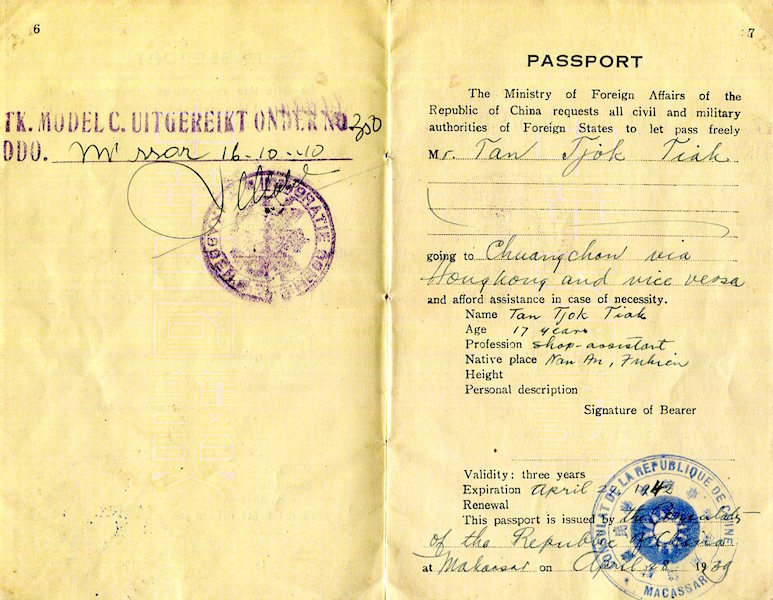 6
TK. MODEL C. UITGEREIKT ONDER NO. 350
DDO. M'ssar 16-10-
7
PASSPORT
The Ministry of Foreign Affairs of the
Republic of China requests all civil and military
authorities of Foreign States to let pass freely
Mr. Tan Tjok Tiak
going to Chuangchow via
Hongkong and vice versa
and afford assistance in case of necessity.
Name Tan Tjok Tiak
Age 17 years
Profession shop-assistant
Native place Nan An, Fukien
Height
Personal description
Signature of Bearer
Validity: three years
Expiration April 1942
Renewal
This passport is issued by the Consulate
of the Republic of China
at Makassar on April 28 1939
CONSULAT DE LA REPUBLIQUE DE CHINE
MACASSAR